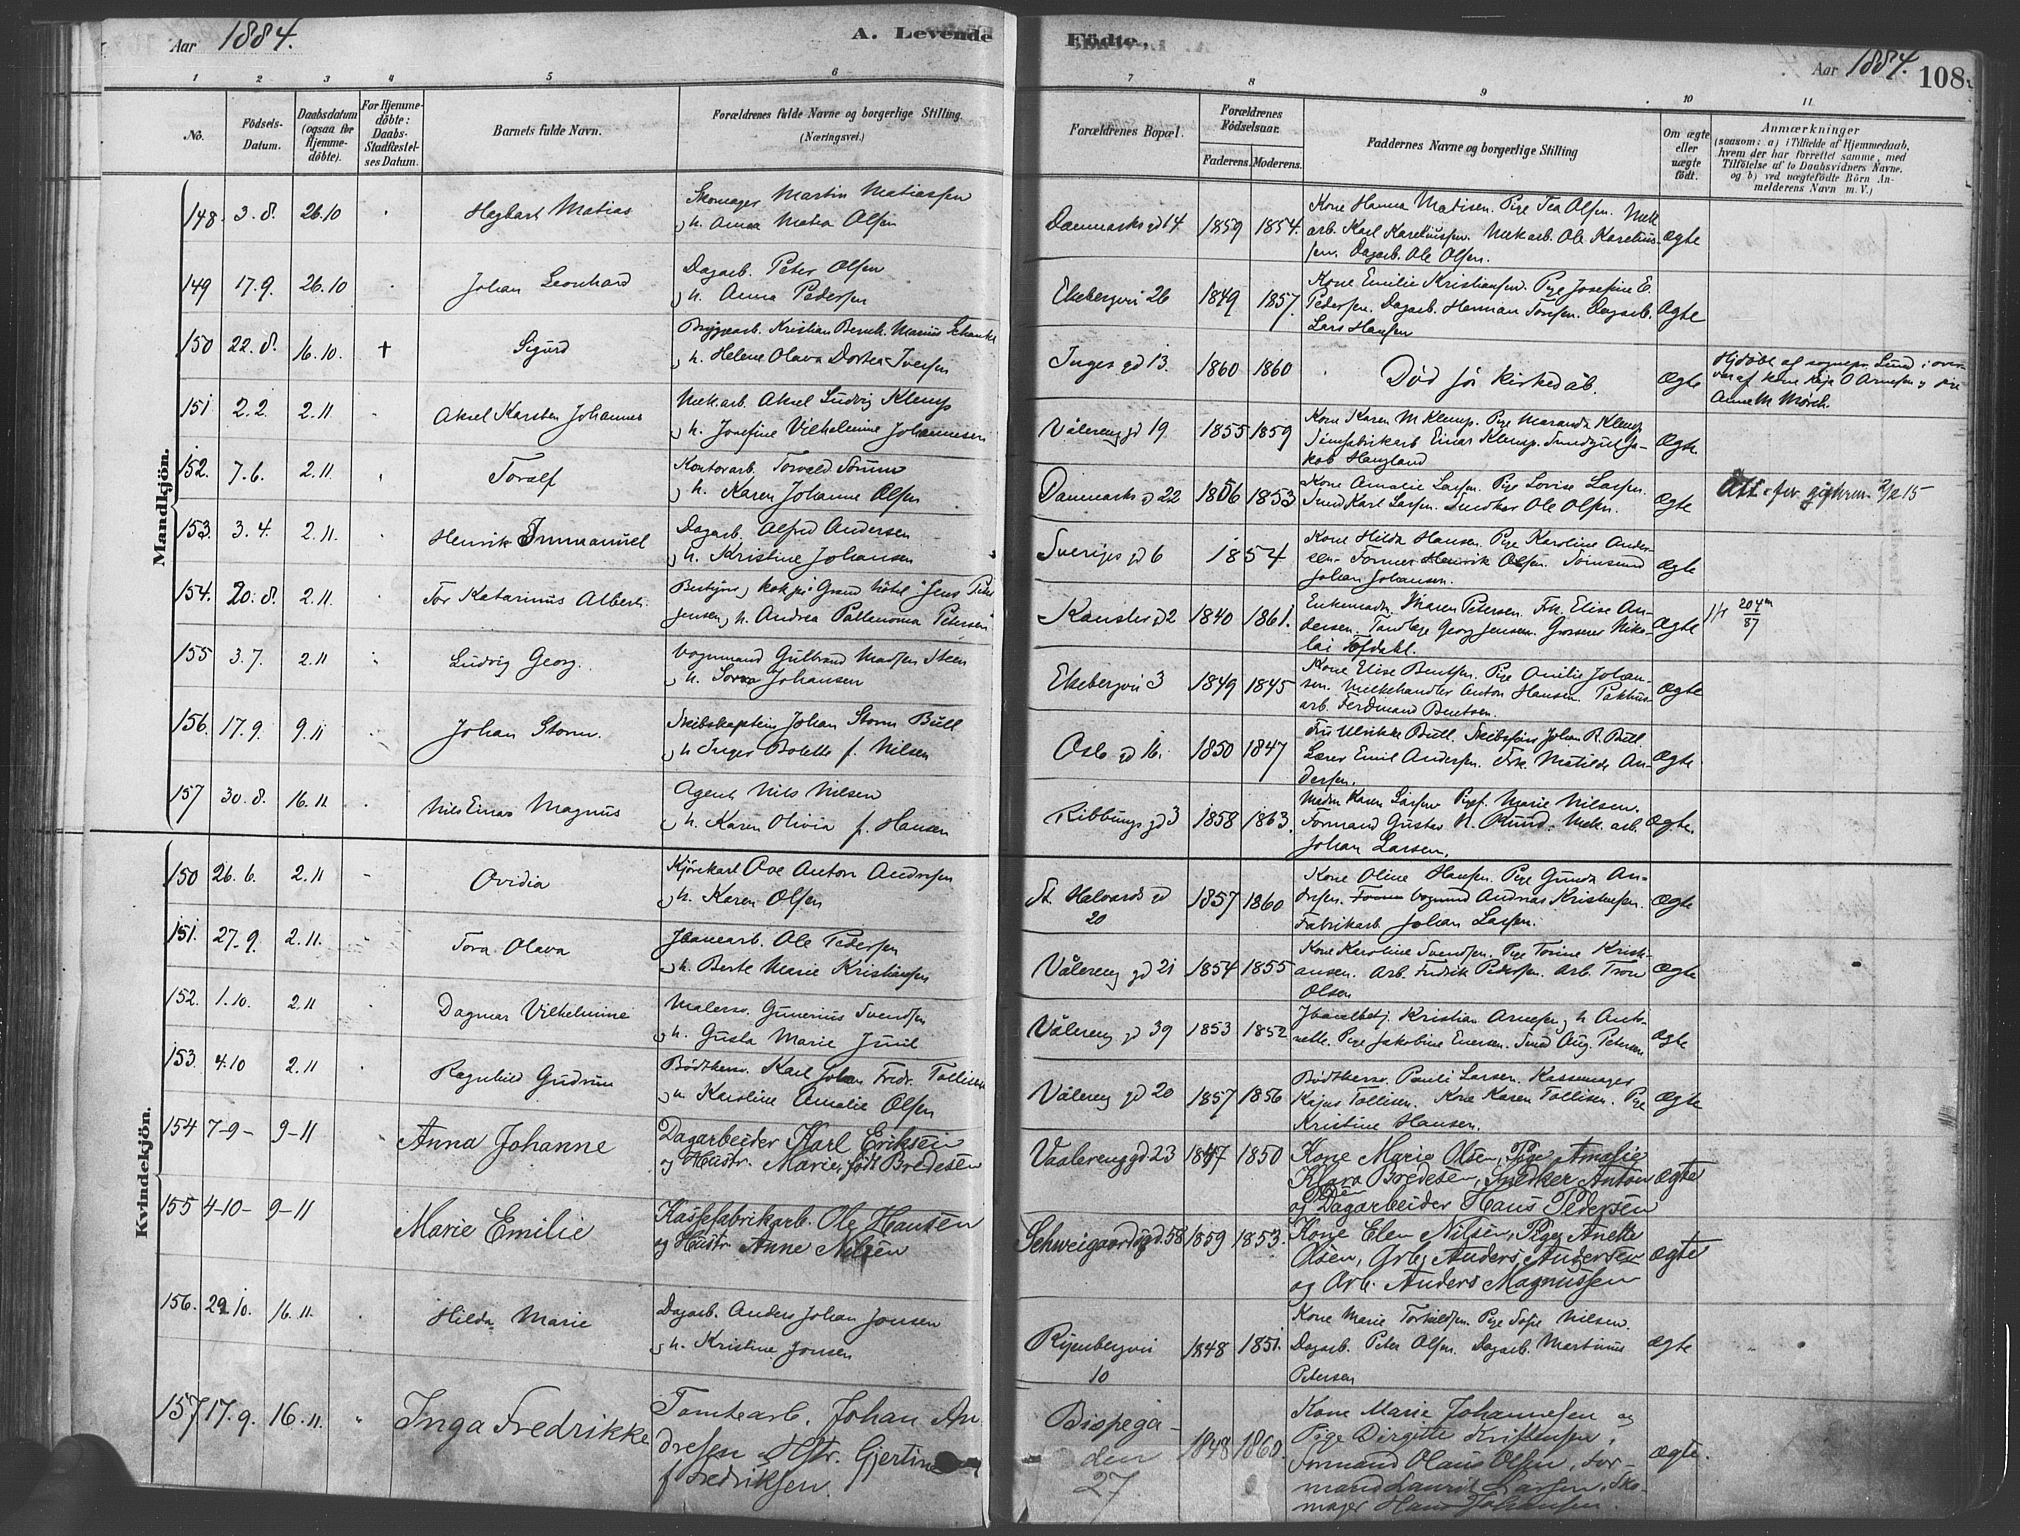 Aar 1884. A. Levende Födte. Aar 1884. 108.
1 2 3 4 5 6 7 8 9 10 11
No. Födsels-Datum. Daabsdatum (ogsaa for Hjemmedöbte). For Hjemmedöbte: Daabs-Stadfæstelses Datum. Barnets fulde Navn. Forældrenes fulde Navne og borgerlige Stilling (Næringsvei.) Forældrenes Bopæl. Forældrenes Födselsaar. Faderens. Moderens. Faddernes Navne og borgerlige Stilling Om ægte eller uægte födt. Anmærkninger (saasom: a) i Tilfælde af Hjemmedaab, hvem der har forrettet samme, med Tilföielse af to Daabsvidners Navne. og b) ved uægtefödte Börn Anmelderens Navn m. V.)
Mandkjön.
148. 3.8. 26.10 Hagbart Matias Skomager Martin Matiassen
h. Anna Matea Olsen Danmarks gd 14 1859 1854. Kone Hanna Madisen. Pige Tea Olsen. Mek
arb. Karl Kareliussen. Mek arb. Ole Karelius-
sen. Dagarb. Ole Olsen. ægte
149 17.9. 26.10 Johan Leonhard Dagarb. Peter Olsen
h. Anna Pedersen Ekebergvei 26 1849 1857. Kone Emilie Kristiansen. Pige Josefine E.
Pedersen. Dagarb. Herman Tonsen. Dagarb.
Lars Hansen Ægte
150 22.8. 16.10. † Sigurd Bryggearb. Kristian Bernh. Marius Schanke
h. Helene Olava Dortea Iversen Inges gd 13. 1860 1860 Död för kirkedåb. Ægte Hjdöbt af sognepr. Lund i over
Anne M. Mörch.
151 2.2. 2.11. Aksel Karsten Johannes Mek.arb. Aksel Ludvig Klemp
h. Josefine Vilhelmine Johannesen Vålereng gd 19 1855 1859 Kone Karen M Klemp. Pige Maranda Klemp
arb Einar Klemp.
kob Haugland Ægte
152. 7.6. 2.11. Toralf Kontorarb. Torvald
h. Karen Johanne Olsen Danmarks gd 22 1856 1853 Kone Amalie Larsen. Pige Lovise Larsen.
Smed Karl Larsen. Snedker Ole Olsen. Ægte
153. 3.4. 2.11. Henrik Immanuel Dagarb. Alfred Andersen
h. Kristine Johansen Sveriges gd 6 1854 Kone Hilda Hansen. Pige Karoline Ander-
sen. Former Henrik Olsen. Tomsmed
Johan Johansen. Ægte
154. 20.8. 2.11. Tor Katarinus Albert. Bestyrer, kok på "Grand hôtel" Jens Peter
Jensen, h. Andrea Pallanoma Petersen Kansler gd 2 1840 1861. Enkemadm. Maren Petersen. Frk. Elise An-
dersen. Tandlæge Georg Jensen. Grosserer Niko-
lai Tofdahl. Ægte
155 3.7. 2.11 Ludvig Georg. Vognmand Gulbrand Madsen Steen
h. Johansen Ekebergvei 3 1849 1845 Kone Elise Bentsen. Pige Amilie Johan-
sen. Melkehandler Anton Hansen. Pakhus
arb. Ferdinand Bentsen. Ægte
156. 17.9. 9.11 Johan Storm. Skibskaptein Johan Storm Bull
h Inger Bolette f. Nilsen Oslo gd 16. 1850 1847 Fru Ulrikke Bull. Skibsförer Johan R. Bull.
Lærer Emil Andersen. Frk. Matilde An-
dersen. Ægte
157 30.8. 16.11. Nils Einar Magnus Agent Nils Nilsen
h. Karen Olivia f. Hansen Ribbungs gd 3 1858 1863. Madm Karen Larsen Pige Marie Nilsen.
Formand Gustav N. Ruud. Mek. arb.
Johan Larsen. Ægte.
Kvindekjön.
150 26.6. 2.11 Ovidia Kjörekarl Ove Anton Andresen
h. Karen Olsen St. Halvards gd
20 1857 1860 Kone Oline Hansen. Pige Gunda An-
dresen. Vognmand Andreas Kristensen.
Fabrikarb Johan Larsen. Ægte
151. 27.9. 2.11. Tora Olava Jbanearb. Ole Pedersen
h. Berte Marie Kristiansen Vålereng gd 21 1854 1855 Kone Karoline Svendsen. Pige Torine Krist-
ansen. Arb. Fredrik Pedersen. Arb. Tron
Olsen Ægte
152. 1.10. 2.11 Dagmar Vilhelmine Malersv. Gunerius Svendsen
h. Gusta Marie Juul Vålereng gd 39 1853 1852 Jbanebetj. Kristian Arnesen, h Anto-
nette. Pige Jakobine Eversen. Smed Aug. Petersen Ægte
153. 4.10 2.11 Ragnhild Gudrun Bödkersv. Karl Johan Fredr. Tollisen
h. Karoline Amalie Olsen Vålereng gd 20 1857 1856 Bödtkersv. Pauli Larsen. Kassemager
Kajus Tollisen. Kone Karen Tollisen. Pige
Kristine Hansen. Ægte
154 7-9- 9-11 Anna Johanne Dagarbeider Karl Eriksen
og Hustr. Marie, født Bredesen Vaalerenggd 23 1847 1850 Kone Marie Olsen, Pige Amalie
Klara Bredesen, Snedker Anton
og Dagarbeider Hans Pedersen ægte
155 4-10- 9-11 Marie Emilie Kassefabrikarb. Ole Hansen
og Hustr Anne Nilsen Schweigaardsgd. 58 1859 1853. Kone Elen Nilsen, Pige Anette
Olsen, Arb. Anders Andersen
og Arb. Anders Magnussen ægte
156. 29.10. 16.11. Hilda Marie Dagarb. Anders Johan Jonsen
h. Kristine Jonsen Ryenbergvei
10 1848 1851. Kone Marie Torkildsen. Pige Sofie Nilsen.
Dagarb. Peter Olsen. Dagarb. Martinus
Petersen ægte
157 17.9. 16.11. Inga Fredrikke Tomtearb. Johan An
dresen og Hstr. Gjertine
f. Fredriksen. Bispega-
den
27 1848 1860. Kone Marie Johannesen og
Pige Birgitte Kristensen,
Formand Olaus Olsen, For-
mand Laurits Larsen, Sko-
mager Hans Johansen. ægte.